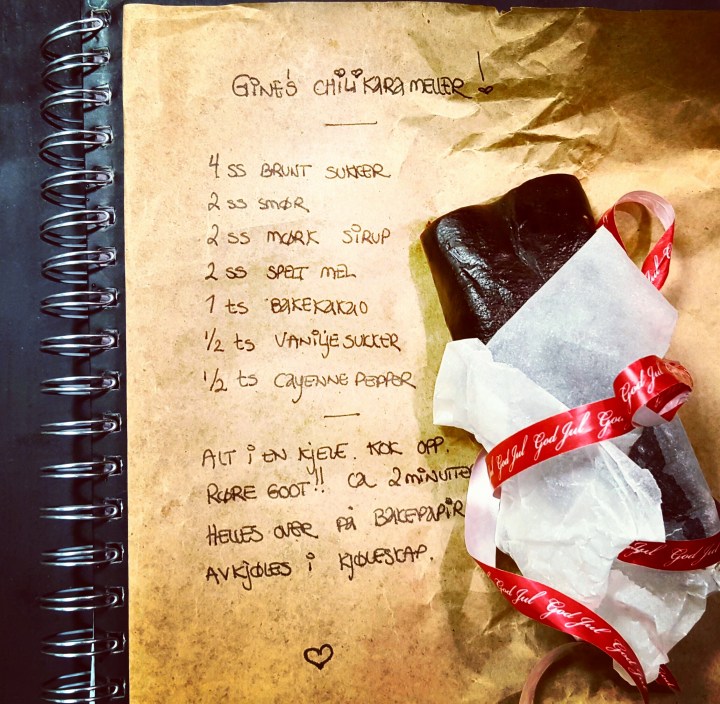 GINE'S CHILIKARAMELLER!
4 SS BRUNT SUKKER
2 SS SMØR
2 SS MØRK SIRUP
2 SS SPELT MEL
1 ts BAKEKAKAO
1/2 ts VANILJESUKKER
1/2 ts CAYENNEPEPPER
ALT I EN KJELE. KOK OPP.
RØRE GODT!! CA 2 MINUTTER
HELLES OVER PÅ BAKEPAPIR
AVKJØLES I KJØLESKAP.
God Jul
God Jul God Jul God
Jul God Jul
God Jul God Jul